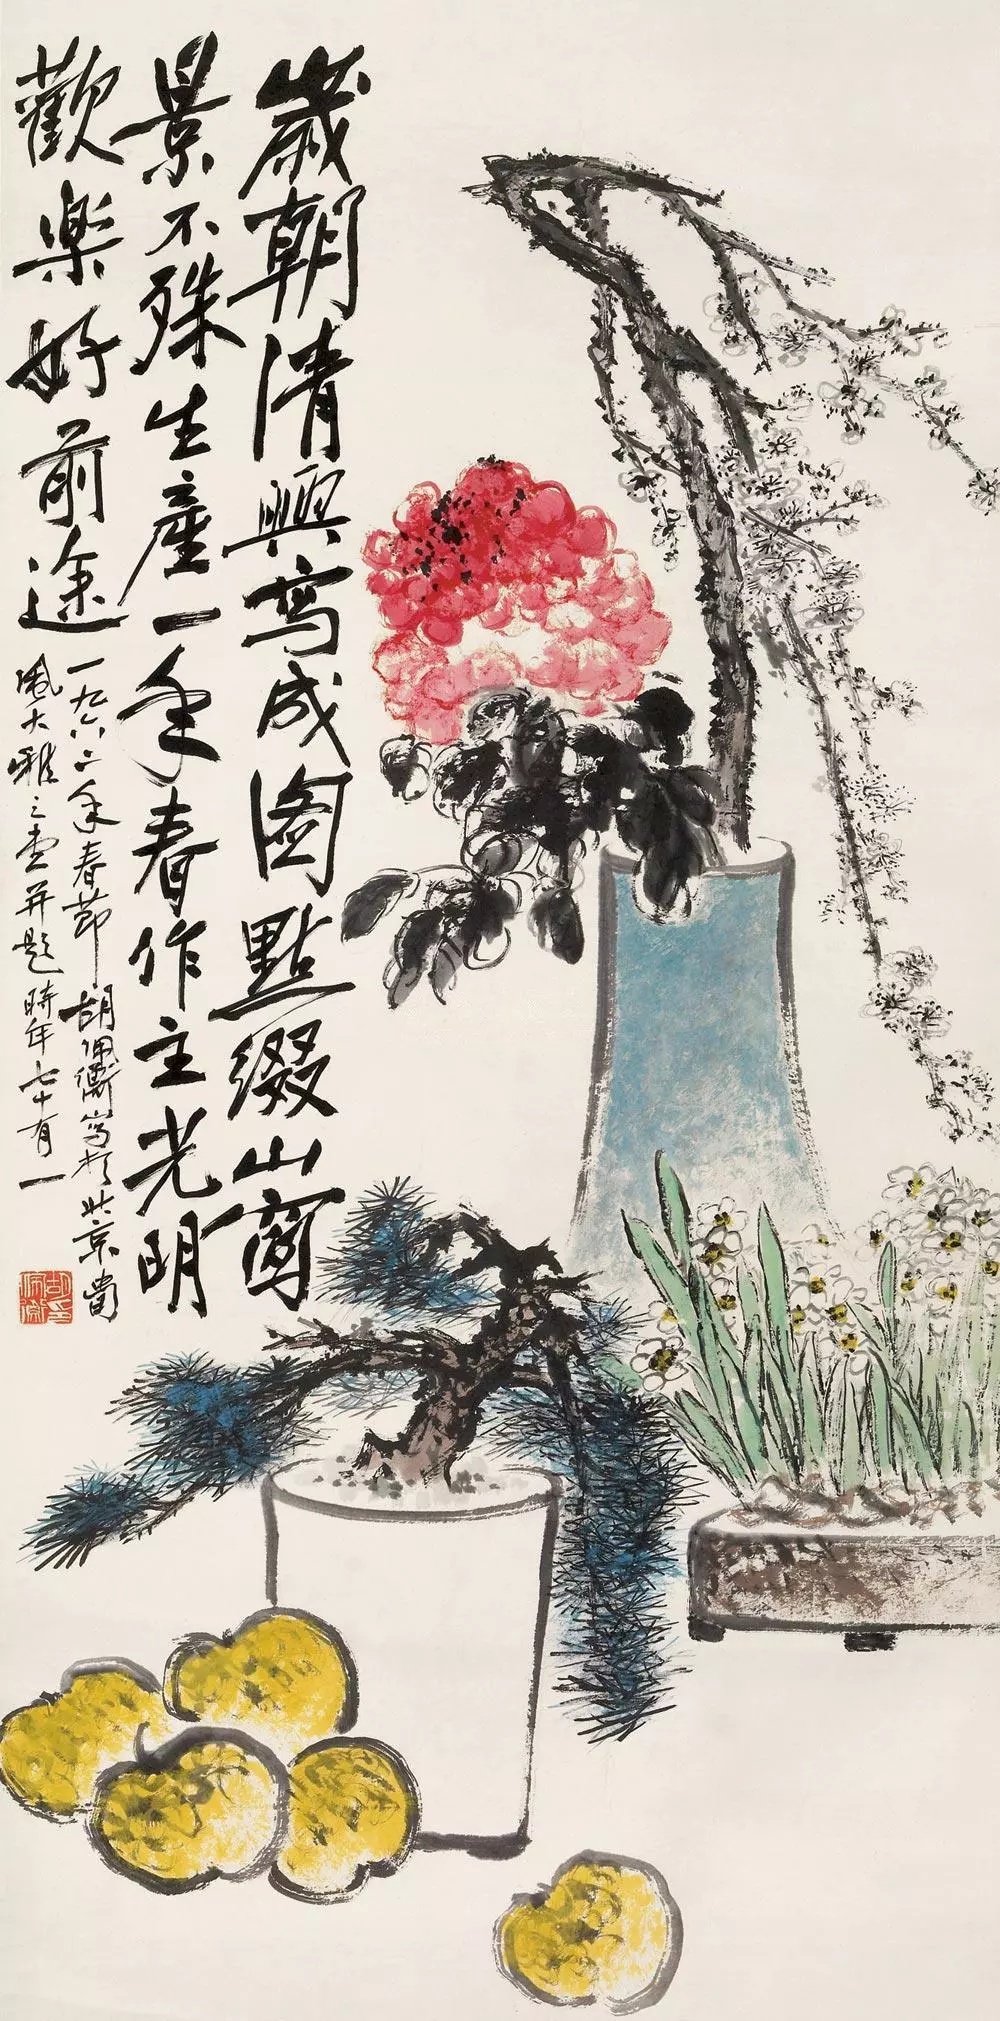 歲朝清興寫成圖點綴山窗
景不殊生產一年春作主光明
歡樂好前途
一九六二年春節胡佩衡寫於北京畫
風大雅之堂并題時年七十有一